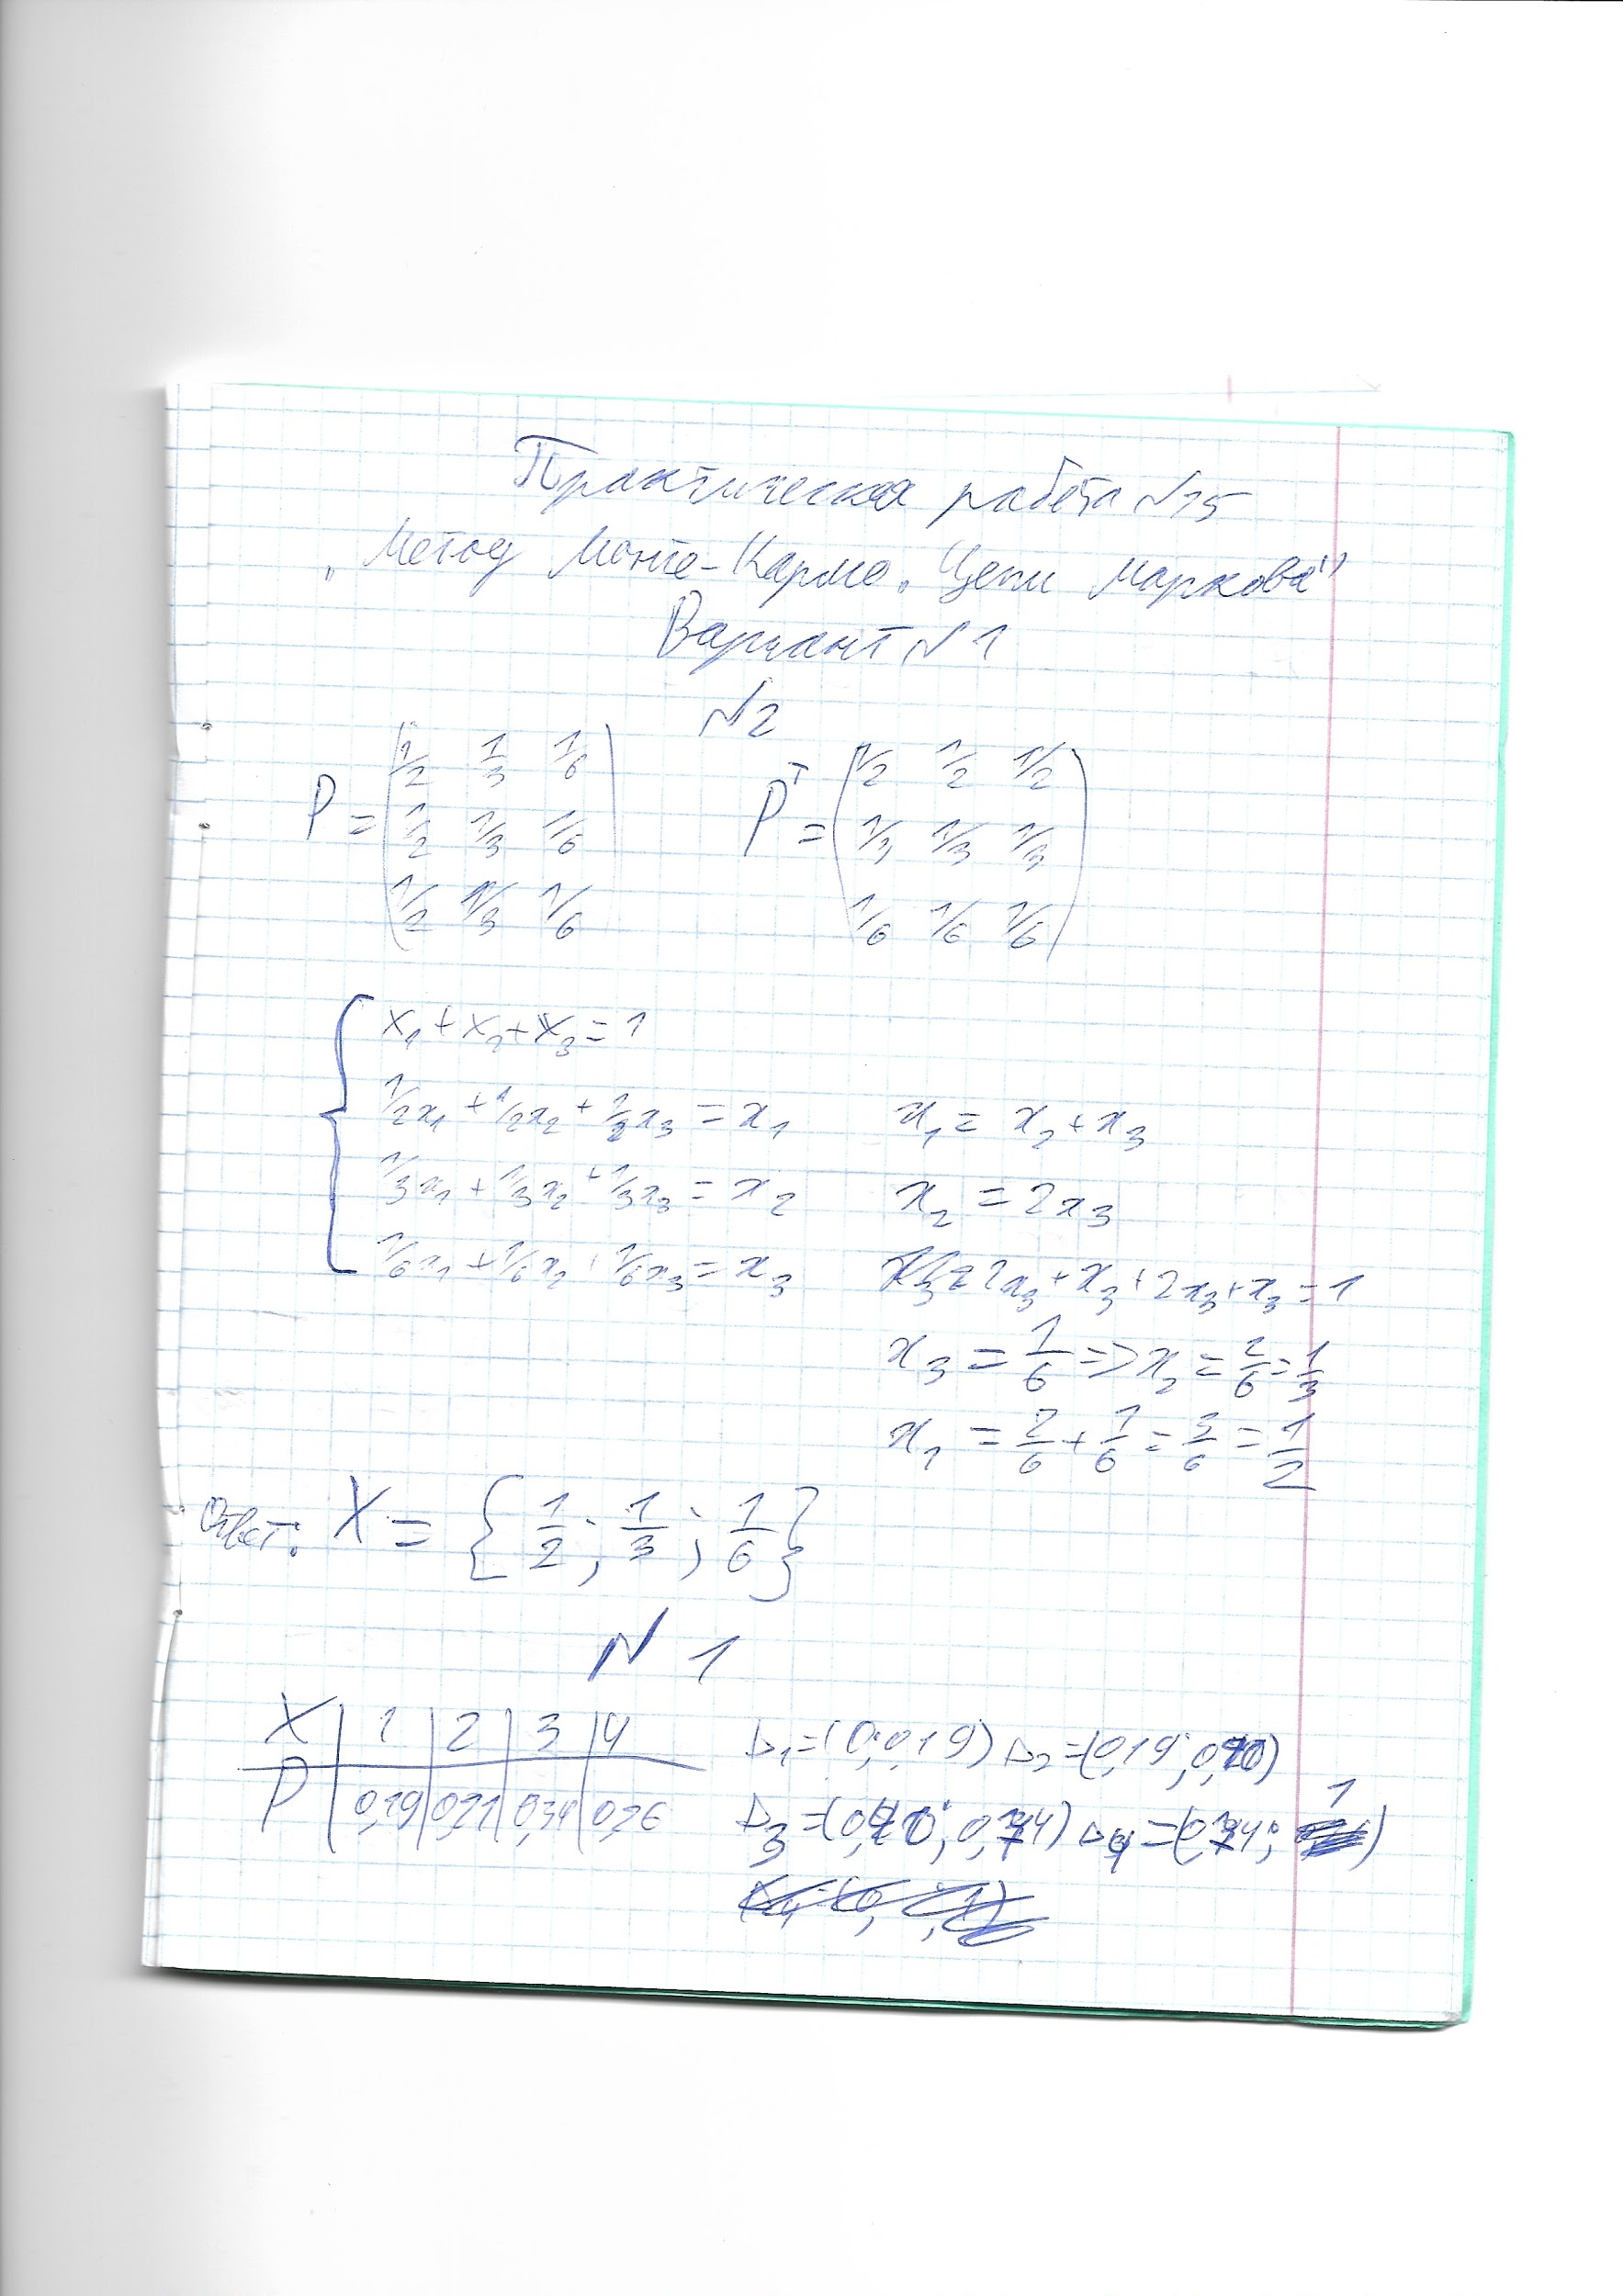 Практическая работа №15
"Метод Монте-Карло. Цепи Маркова"
Вариант №1
№2
P = (1/2 1/3 1/6
1/2 1/3 1/6
1/2 1/3 1/6)
P^T = (1/2 1/2 1/2
1/3 1/3 1/3
1/6 1/6 1/6)
{ x₁ + x₂ + x₃ = 1
1/2x₁ + 1/2x₂ + 1/2x₃ = x₁ x₁ = x₂ + x₃
1/3x₁ + 1/3x₂ + 1/3x₃ = x₂ x₂ = 2x₃
1/6x₁ + 1/6x₂ + 1/6x₃ = x₃ 2x₃ + x₃ + 2x₃ + x₃ = 1
x₃ = 1/6 => x₂ = 2/6 = 1/3
x₁ = 2/6 + 1/6 = 3/6 = 1/2
Ответ: X = {1/2; 1/3; 1/6}
№ 1
X | 1 | 2 | 3 | 4
P | 0,19 | 0,21 | 0,34 | 0,26
Δ₁ = (0; 0,19) Δ₂ = (0,19; 0,40)
Δ₃ = (0,40; 0,74) Δ₄ = (0,74; 1)